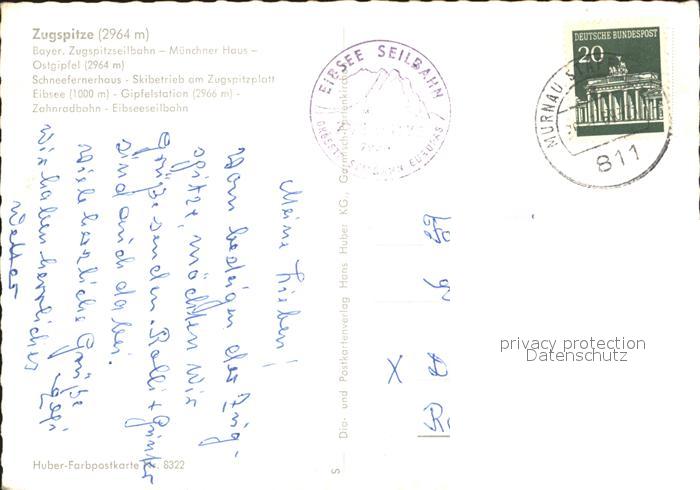 Zugspitze (2964 m)
Bayer. Zugspitzseilbahn – Münchner Haus –
Ostgipfel (2964 m)
Schneefernerhaus - Skibetrieb am Zugspitzplatt
Eibsee (1000 m) - Gipfelstation (2966 m) -
Zahnradbahn - Eibseeseilbahn
Meine Lieben!
Vom besteigen der Zug-
spitze, möchten wir
Grüße senden. Rolli + Günter
sind auch dabei.
Viele herzliche Grüße
wir haben herrliches
Wetter
Huber-Farbpostkarte Nr. 8322
S — Dia- und Postkartenverlag Hans Huber KG., Garmisch-Partenkirchen
EIBSEE SEILBAHN
GRÖSSTE SEILBAHN EUROPAS
DEUTSCHE BUNDESPOST
20
MURNAU
811
privacy protection
Datenschutz